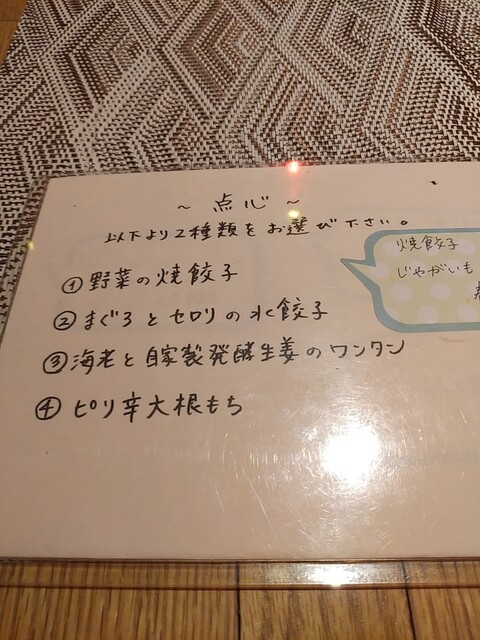 ～ 点心 ～
以下より2種類をお選び下さい。
① 野菜の焼餃子
② まぐろとセロリの水餃子
③ 海老と自家製発酵生姜のワンタン
④ ピリ辛大根もち
焼餃子
じゃがいも